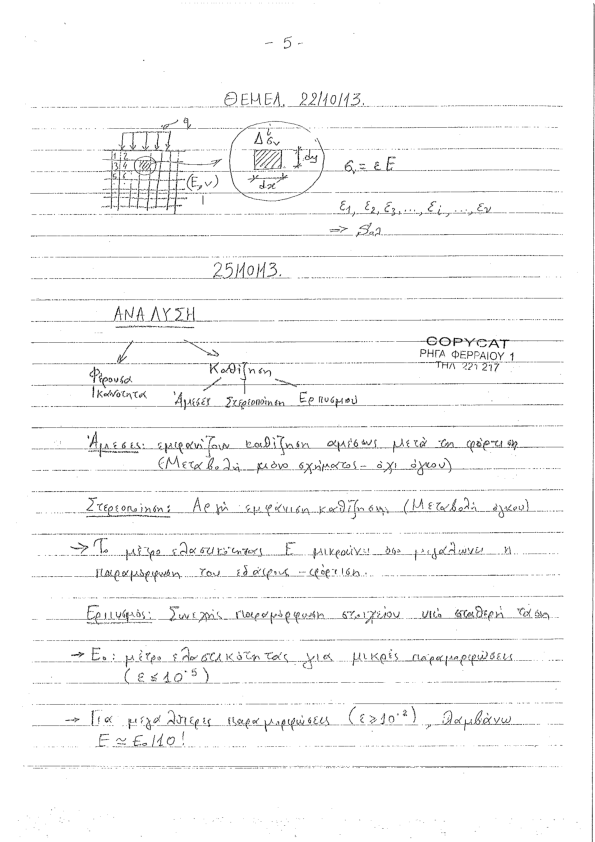 - 5 -
ΘΕΜΕΛ. 22/10/13.
q
1 2
3 4
5 6
(E, ν)
Δσᵥ
dy
dx
σᵥ = ε E
ε₁, ε₂, ε₃, ..., εᵢ, ..., εᵥ
⇒
25/10/13.
ΑΝΑΛΥΣΗ
Φέρουσα Ικανότητα
Καθίζηση
Άμεσες Στερεοποίηση Ερπυσμού
COPYCAT
ΡΗΓΑ ΦΕΡΡΑΙΟΥ 1
ΤΗΛ 221 217
Άμεσες: εμφανίζουν καθίζηση αμέσως μετά τη φόρτιση
(Μεταβολή μόνο σχήματος - όχι όγκου)
Στερεοποίηση: Αργή εμφάνιση καθίζησης (Μεταβολή όγκου)
→ Το μέτρο ελαστικότητας E μικραίνει όσο μεγαλώνει η
παραμόρφωση του εδάφους - φόρτιση.
Ερπυσμός: Συνεχής παραμόρφωση στοιχείου υπό σταθερή τάση
→ E₀: μέτρο ελαστικότητας για μικρές παραμορφώσεις
(ε ≤ 10⁻⁵)
→ Για μεγαλύτερες παραμορφώσεις (ε ≥ 10⁻²), λαμβάνω
E ≃ E₀/10!